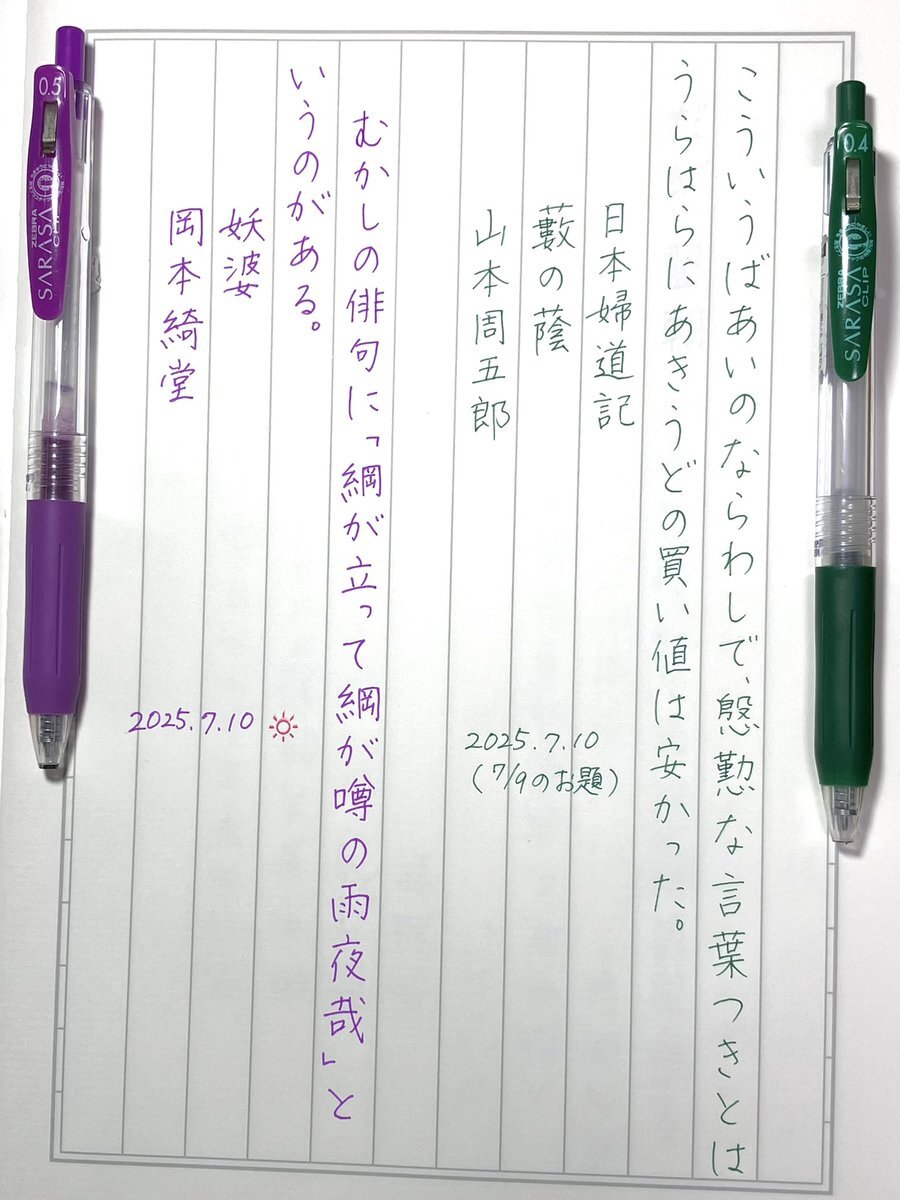 こういうばあいのならわしで、慇懃な言葉つきとは
うらはらにあきうどの買い値は安かった。
日本婦道記
藪の蔭
山本周五郎
2025.7.10
(7/9のお題)
むかしの俳句に「綱が立って綱が噂の雨夜哉」と
いうのがある。
妖婆
岡本綺堂
2025.7.10
0.5
ZEBRA
SARASA
CLIP
0.4
ZEBRA
SARASA
CLIP